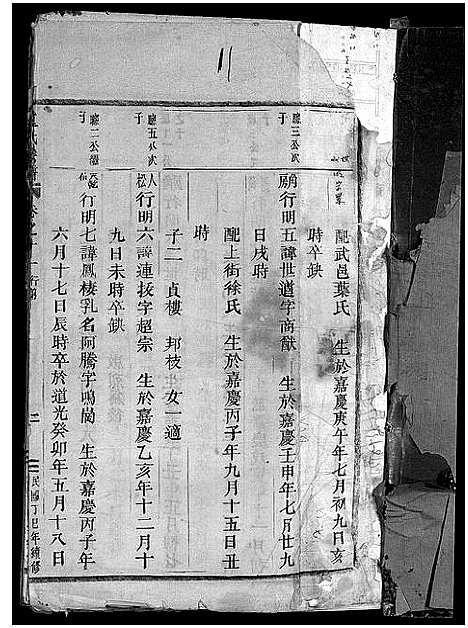 配武邑葉氏 生於嘉慶庚午年七月初九日亥
時卒缺
驄三公次
子
願行明五諱世道字商猷 生於嘉慶壬申年七月廿九
日戌時
配上街徐氏 生於嘉慶丙子年九月十五日丑
時
子二 貞樓 邦枝 女一適
驄五公次
子
行明六諱連抜字超宗 生於嘉慶乙亥年十二月十
九日未時卒缺
驄二公繼
子
行明七諱鳳棲乳名阿騰字鳴崗 生於嘉慶丙子年
六月十七日辰時卒於道光癸卯年五月十八日
行明
二
民國丁巳年續修